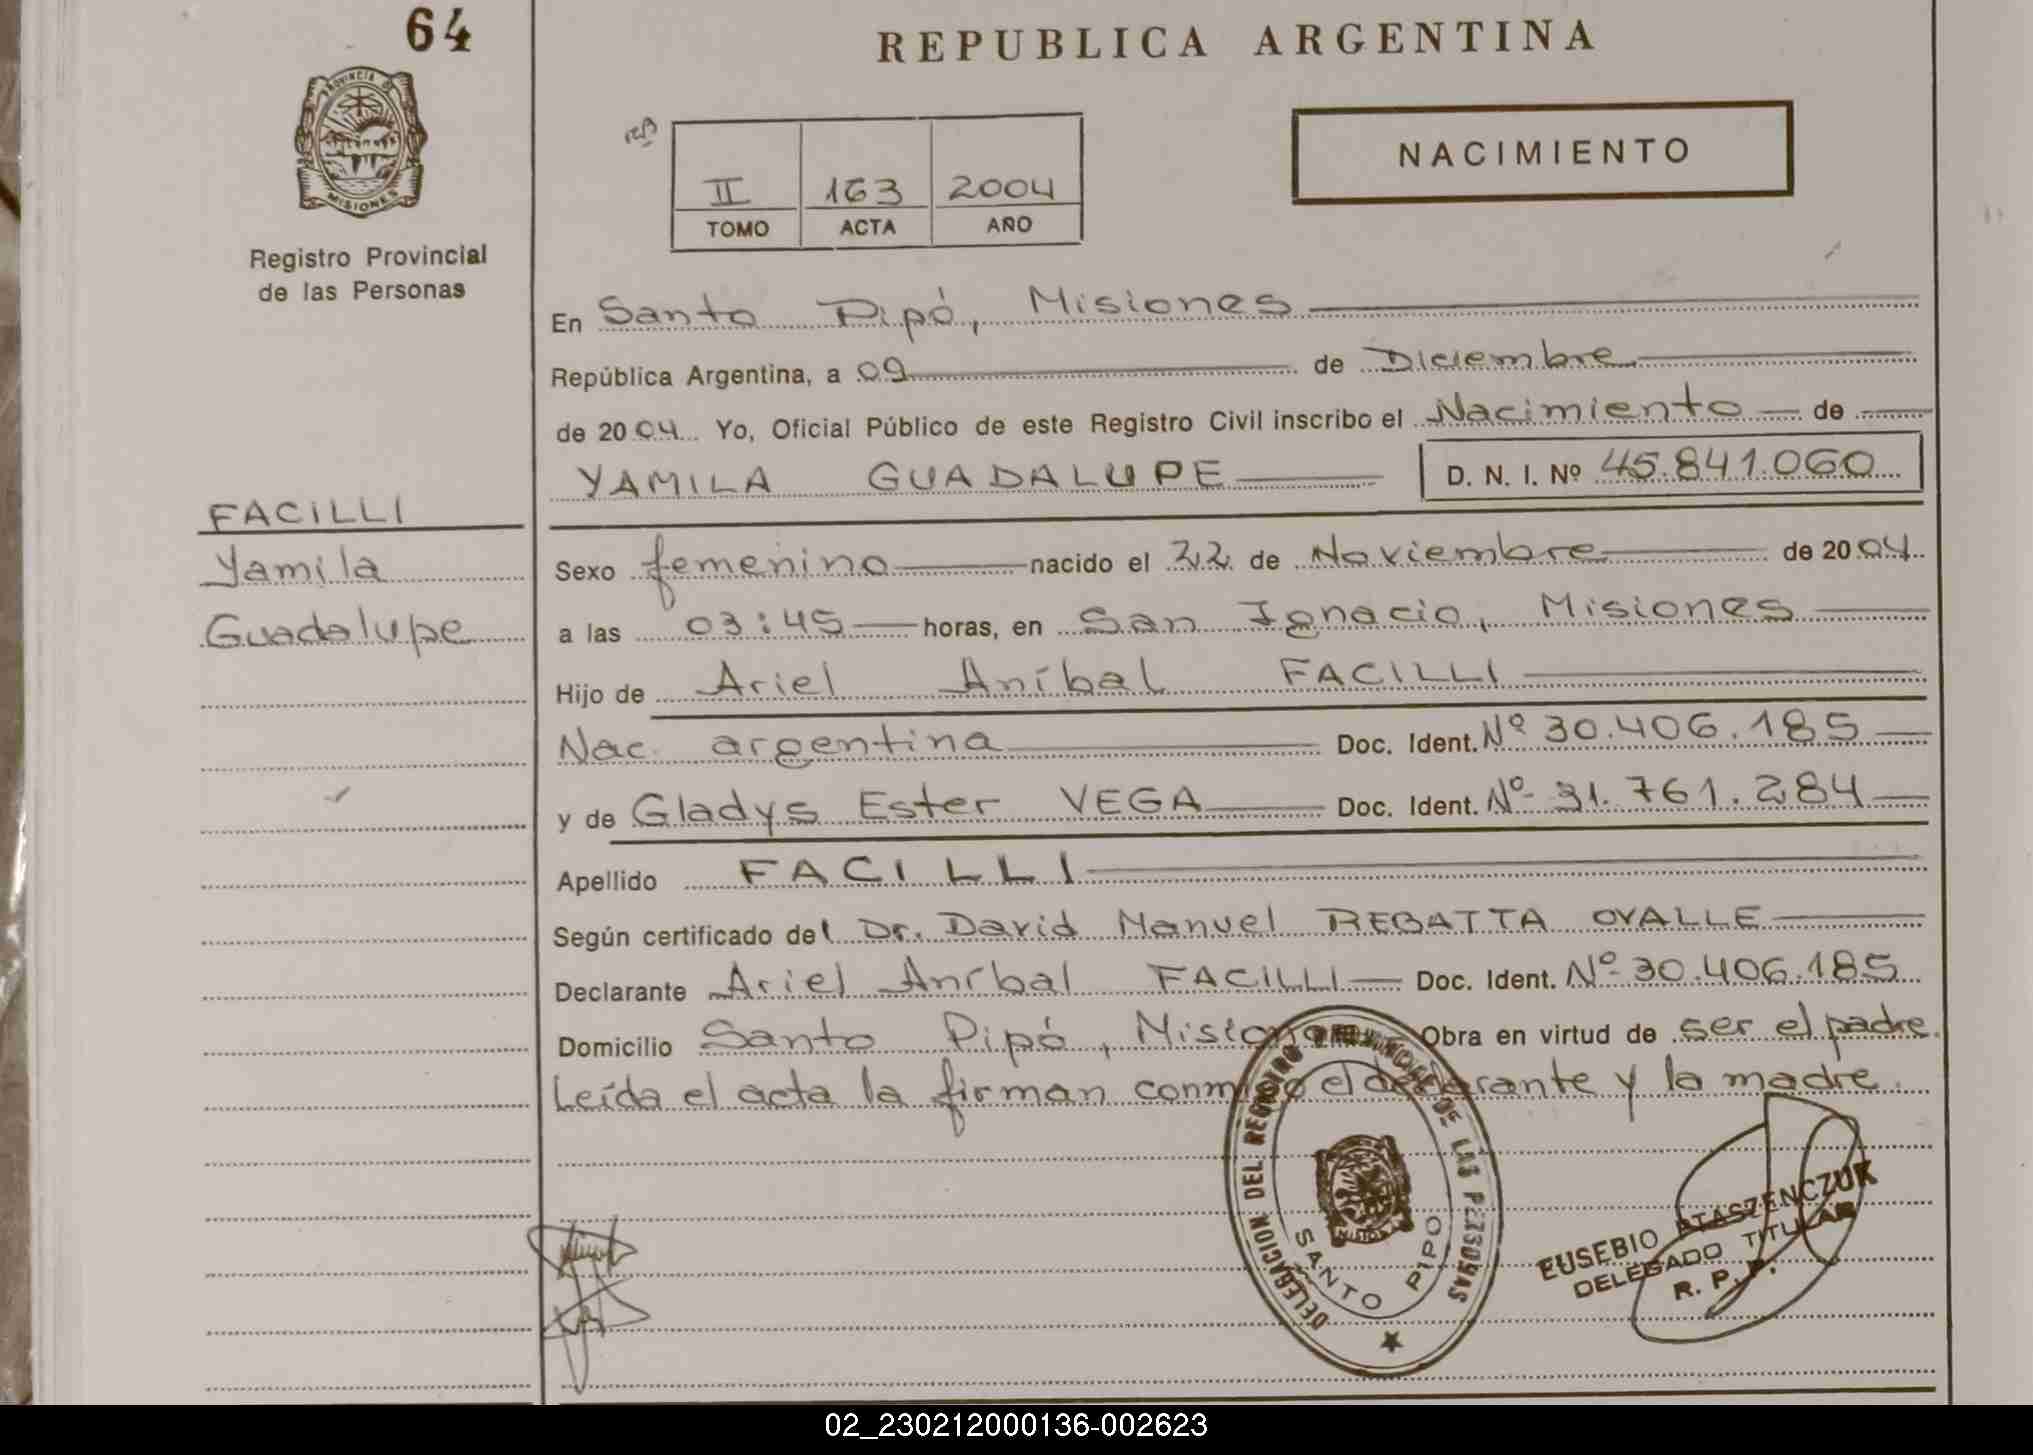 64
REPUBLICA ARGENTINA
PROVINCIA DE
MISIONES
Registro Provincial
de las Personas
NACIMIENTO
II 163 2004
TOMO ACTA AÑO
En Santo Pipó, Misiones
República Argentina, a 09 de Diciembre
de 2004 Yo, Oficial Público de este Registro Civil inscribo el Nacimiento de
YAMILA GUADALUPE D. N. I. Nº 45.841.060
FACILLI
Yamila
Guadalupe
Sexo femenino nacido el 22 de Noviembre de 2004
a las 03:45 horas, en San Ignacio, Misiones
Hijo de Ariel Aníbal FACILLI
Nac. argentina Doc. Ident. Nº 30.406.185
y de Gladys Ester VEGA Doc. Ident. Nº 31.761.284
Apellido FACILLI
Según certificado del Dr. David Manuel REBATTA OVALLE
Declarante Ariel Aníbal FACILLI Doc. Ident. Nº 30.406.185
Domicilio Santo Pipó, Misiones Obra en virtud de ser el padre.
Leída el acta la firman conmigo el declarante y la madre.
DELEGACION DEL REGISTRO PROVINCIAL DE LAS PERSONAS
MISIONES
SANTO PIPO
EUSEBIO PTASZENCZUK
DELEGADO TITULAR
R. P. P.
02_230212000136-002623